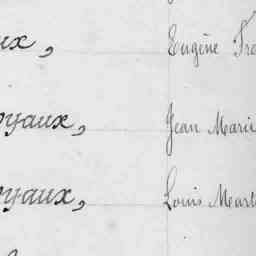 ux, Eugène Fra
oyaux, Jean Marie
oyaux, Louis Mart